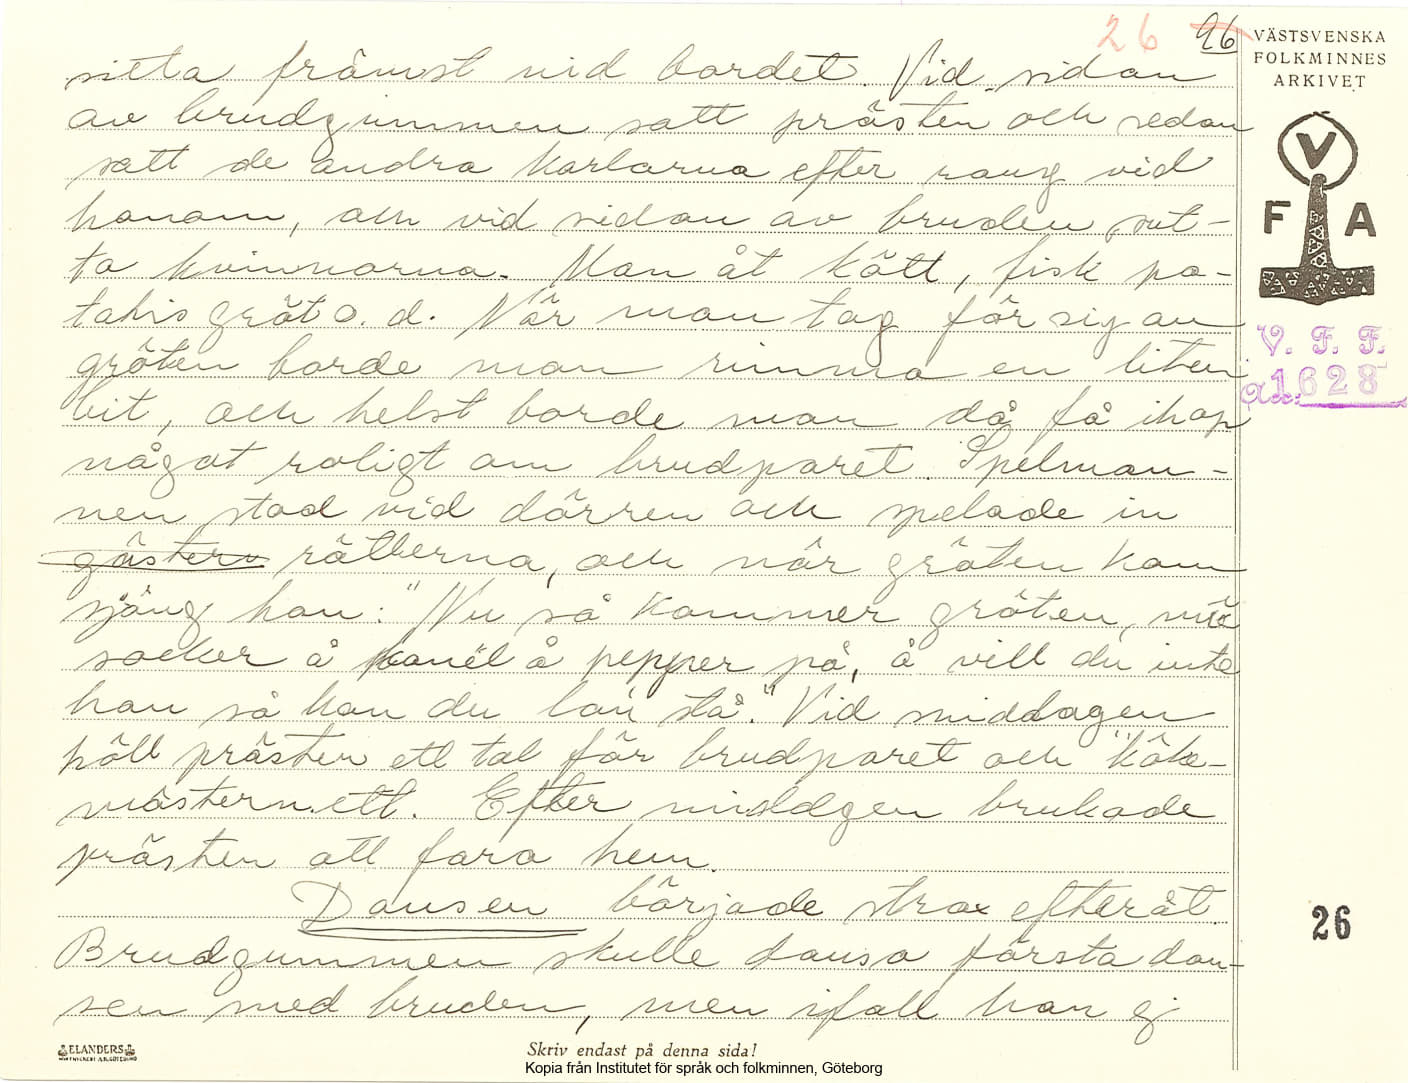 26 26
VÄSTSVENSKA
FOLKMINNES
ARKIVET
sitta främst vid bordet. Vid sidan
av brudgummen satt prästen och sedan
satt de andra karlarna efter rang vid
honom, och vid sidan av bruden sut-
ta kvinnorna. Man åt kött, fisk po-
tatis gröt o. d. När man tog för sig av
gröten borde man rimma en liten
bit, och helst borde man då få ihop
något roligt om brudparet. Spelman-
nen stod vid dörren och spelade in
gästern rätterna, och när gröten kom
sjöng han: "Nu så kommer gröten, mä
socker å kanel å pepper på, å vill du inte
han så kan du lan stå". Vid middagen
höll prästen ett tal för brudparet och "köke-
mästern ett. Efter middgen brukade
prästen att fara hem.
Dansen började strax efteråt
Brudgummen skulle dansa första dan-
sen med bruden, men ifall han ej
V
F A
V. F. F.
Acc: 1628
26
ELANDERS
Skriv endast på denna sida!
Kopia från Institutet för språk och folkminnen, Göteborg